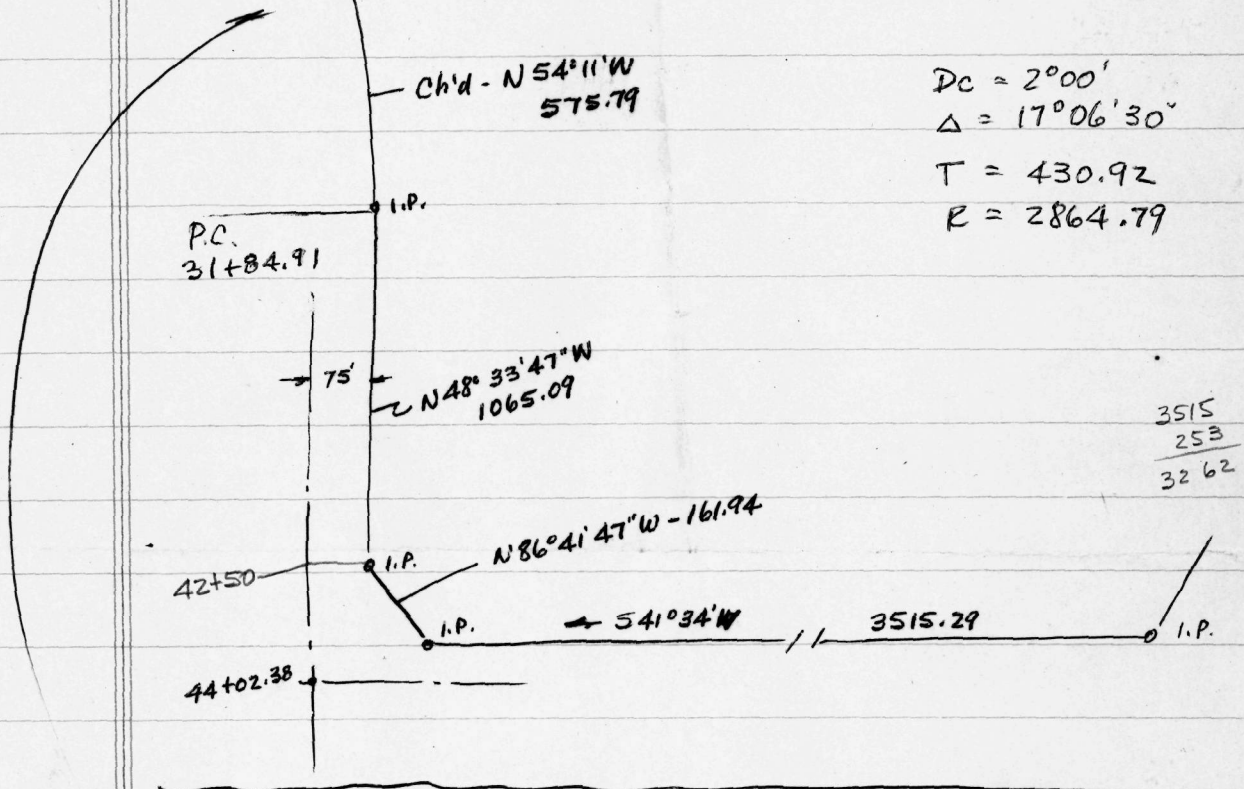 Ch'd - N 54°11'W
575.79
Dc = 2°00'
Δ = 17°06'30"
T = 430.92
R = 2864.79
I.P.
P.C.
31+84.91
75'
N 48° 33' 47" W
1065.09
3515
253
3262
N 86° 41' 47" W - 161.94
42+50
I.P.
I.P.
S 41° 34' W
3515.29
I.P.
44+02.38